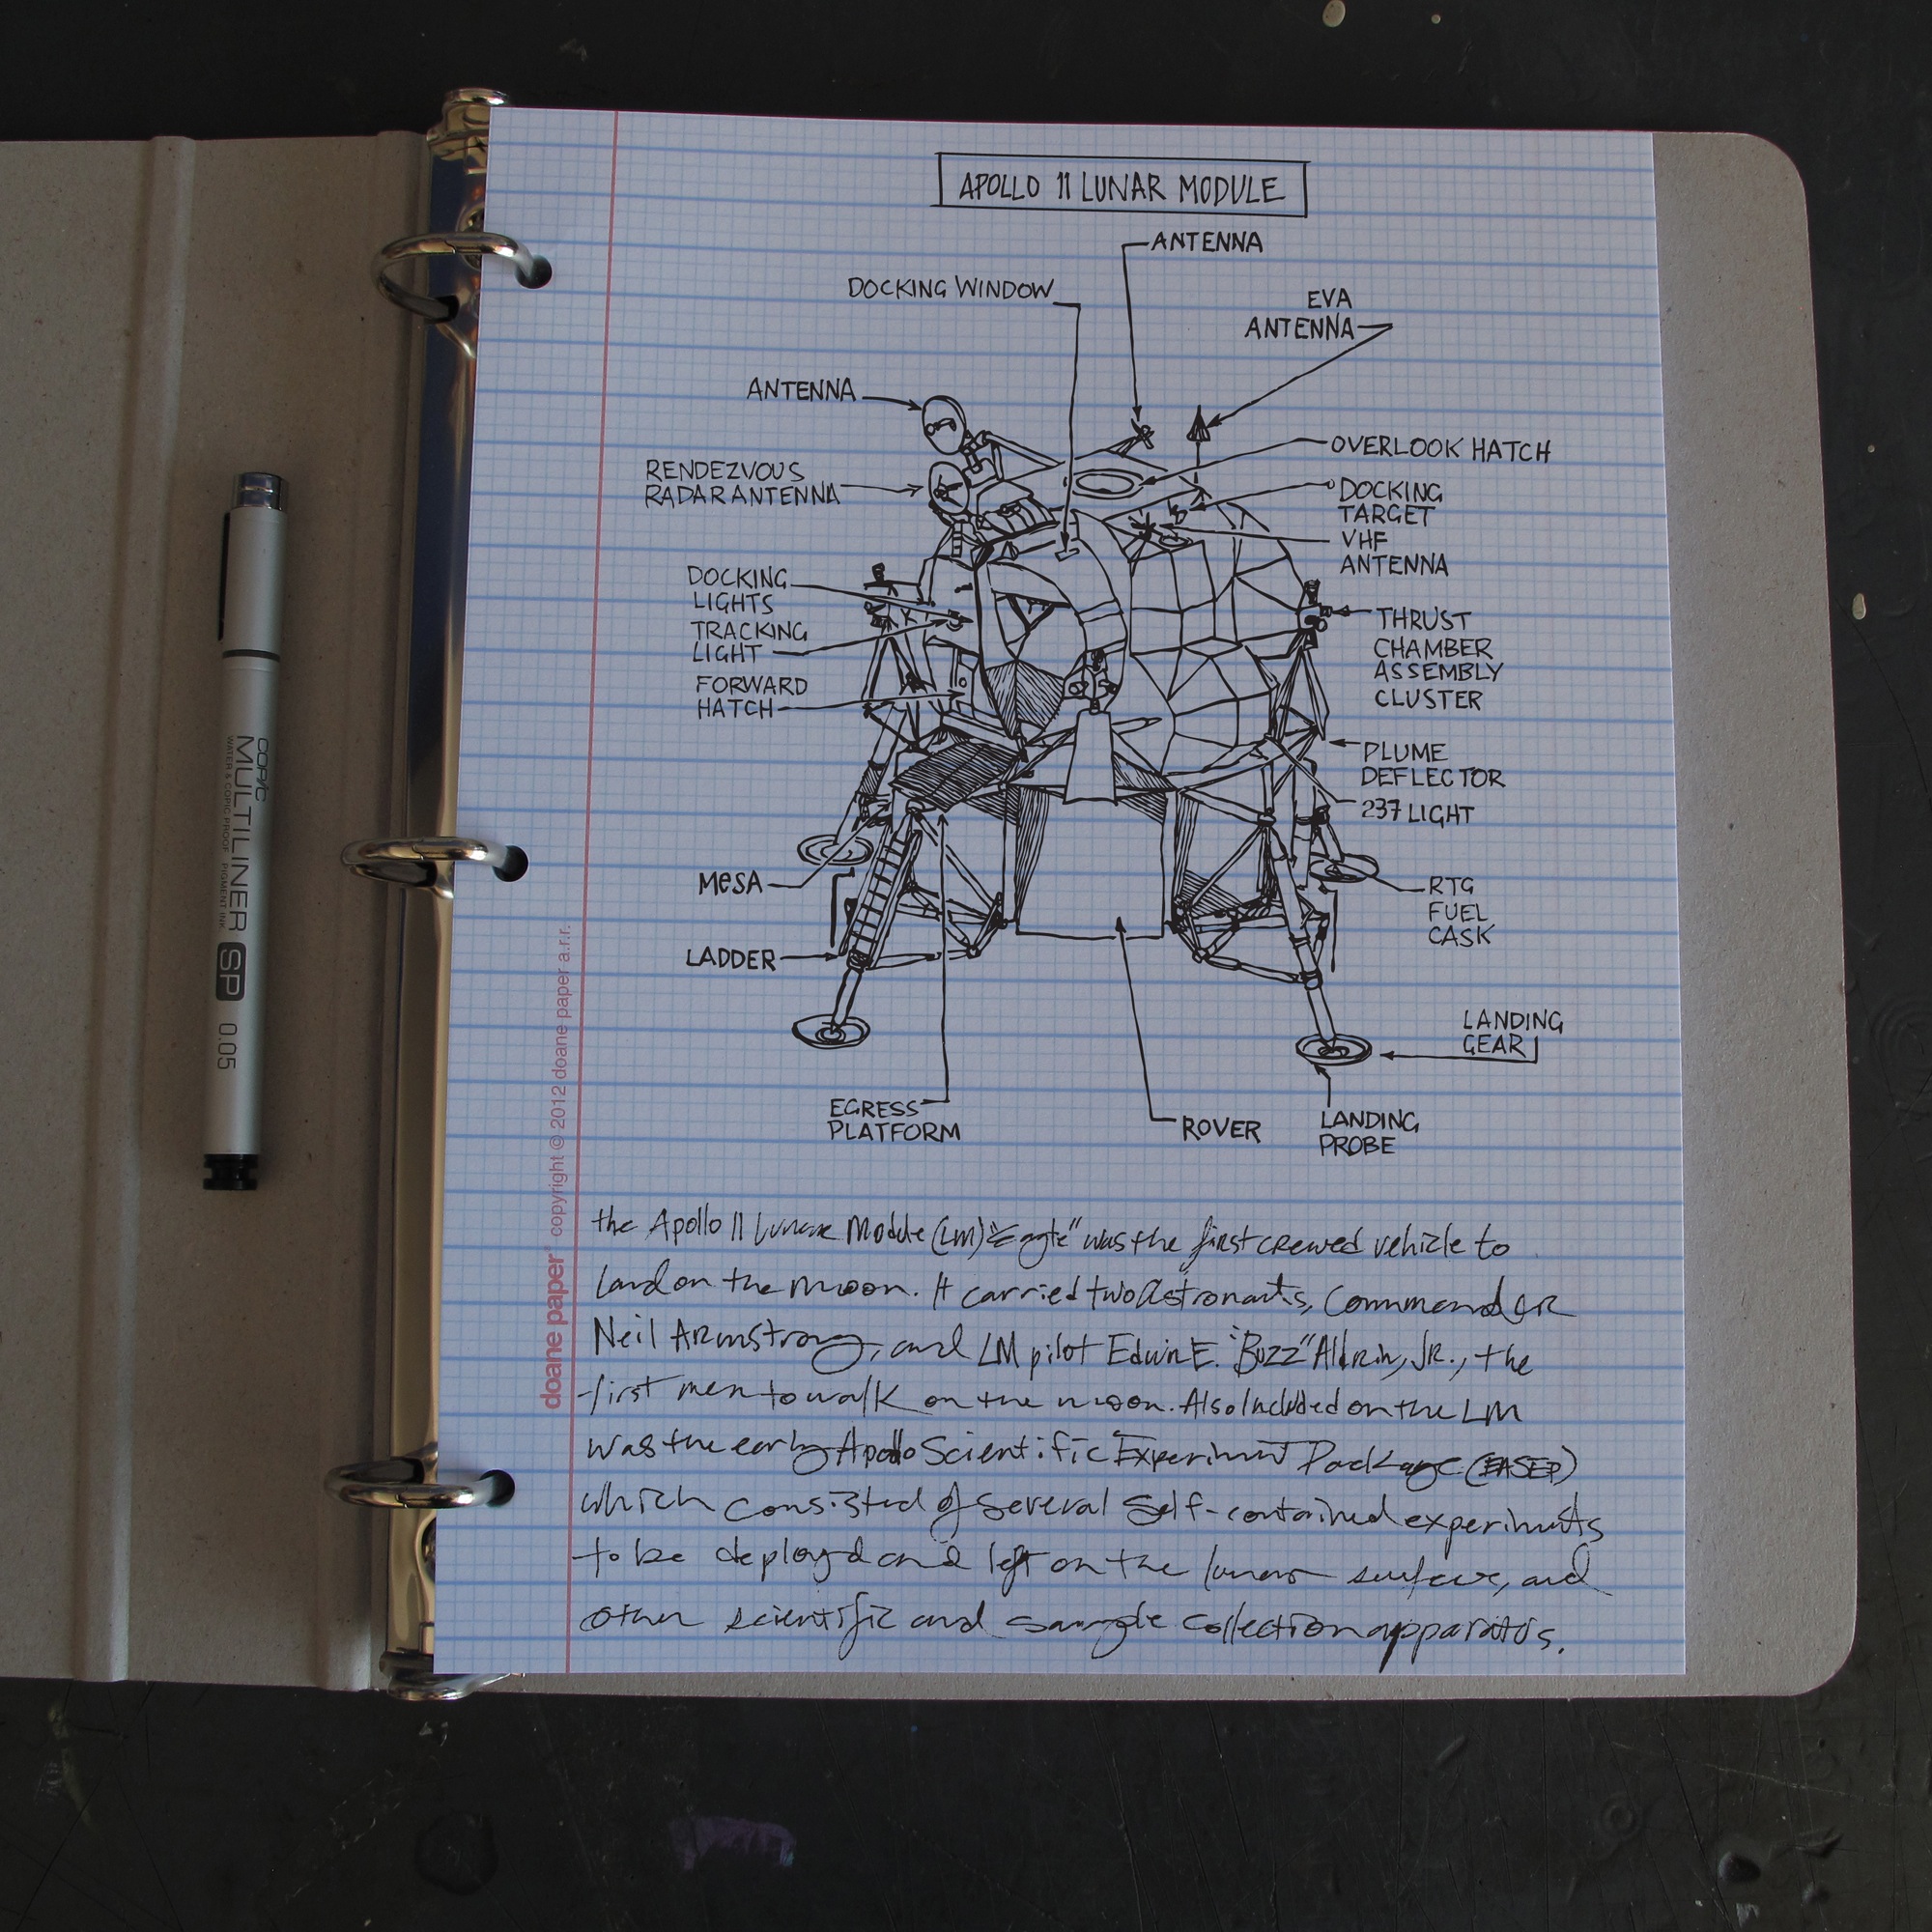 APOLLO 11 LUNAR MODULE
ANTENNA
DOCKING WINDOW
EVA
ANTENNA
ANTENNA
OVERLOOK HATCH
RENDEZVOUS
RADAR ANTENNA
DOCKING
TARGET
VHF
ANTENNA
DOCKING
LIGHTS
TRACKING
LIGHT
FORWARD
HATCH
THRUST
CHAMBER
ASSEMBLY
CLUSTER
PLUME
DEFLECTOR
237 LIGHT
MESA
RTG
FUEL
CASK
LADDER
LANDING
GEAR
EGRESS
PLATFORM
ROVER
LANDING
PROBE
the Apollo 11 Lunar Module (LM) "Eagle" was the first crewed vehicle to
land on the moon. It carried two Astronauts, Commander
Neil Armstrong, and LM pilot Edwin E. "Buzz" Aldrin, JR., the
first men to walk on the moon. Also Included on the LM
was the early Apollo Scientific Experiment Package (EASEP)
which consisted of several self-contained experiments
to be deployd and left on the lunar surface, and
other scientific and sample collection apparatus.
doane paper copyright © 2012 doane paper a.r.r.
COPIC
MULTILINER SP 0.05
WATER & COPIC PROOF PIGMENT INK